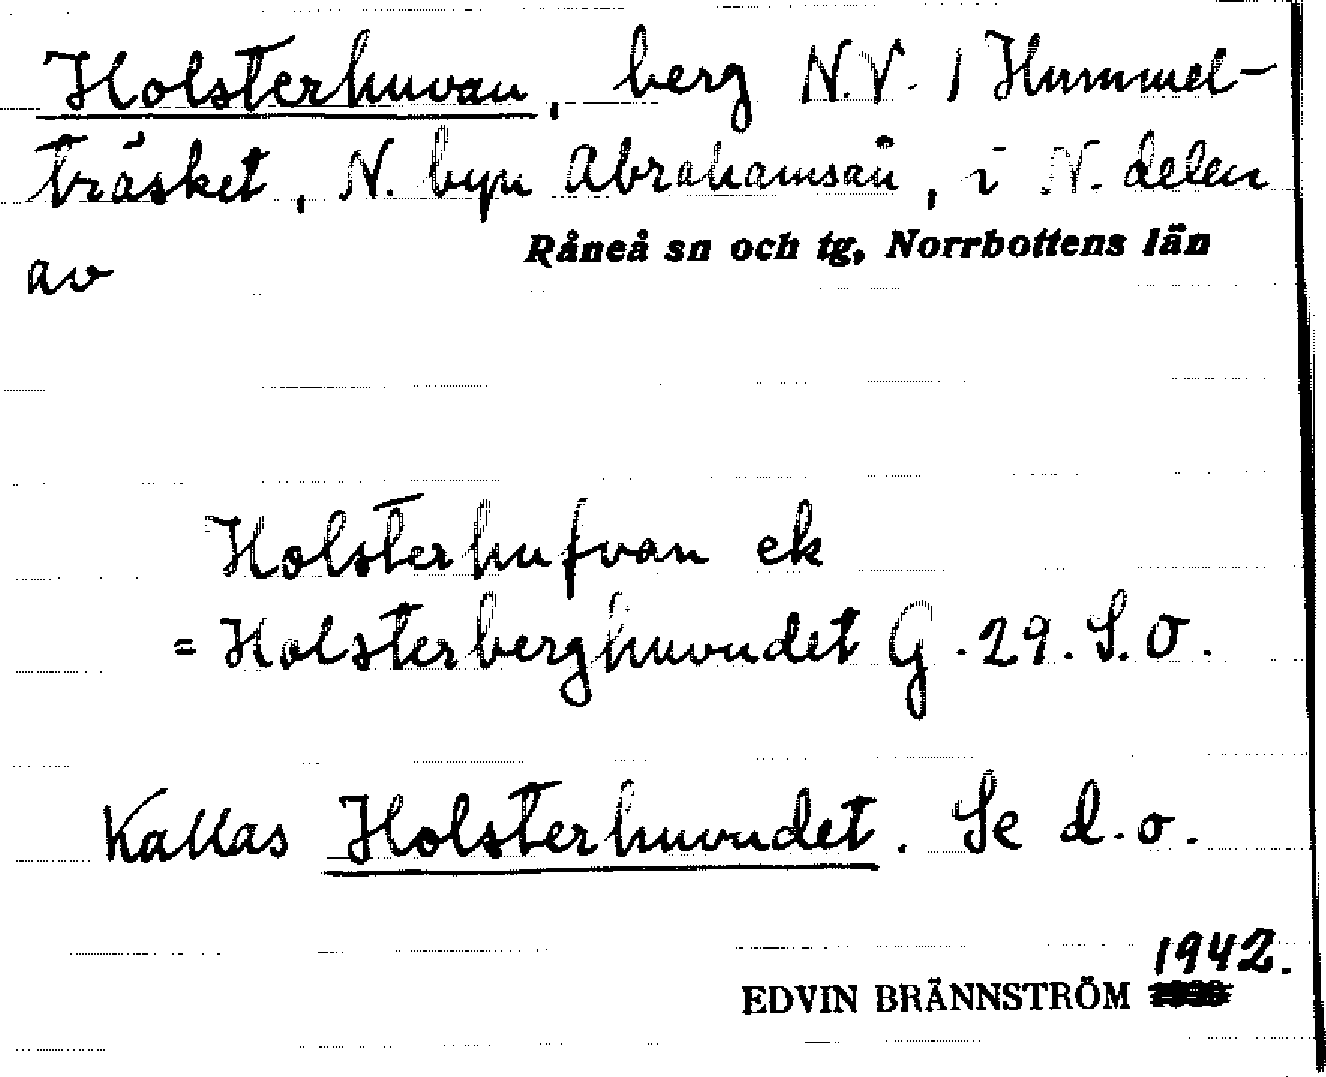 Holsterhuvan, berg N.V. / Hummel-
träsket, N. byn Abrahamsån, i N. delen
av Råneå sn och tg, Norrbottens län
Holsterhufvan ek
= Holsterberghuvudet G. 29. S.O.
Kallas Holsterhuvudet. Se d.o.
1942.
EDVIN BRÄNNSTRÖM